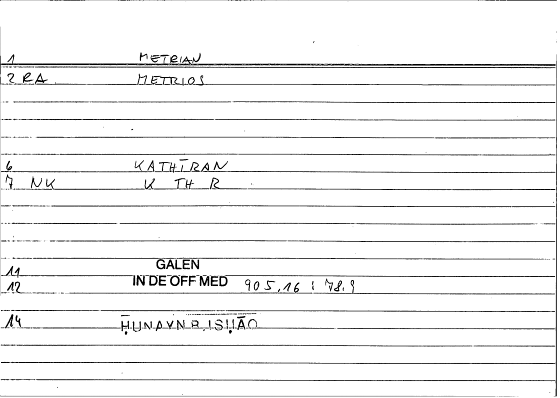 1 METRIAN
2 RA METRIOS
6 KATHĪRAN
7 NK K TH R
11 GALEN
12 IN DE OFF MED 905,16 : 78.9
14 ḤUNAYN B. ISḤĀQ